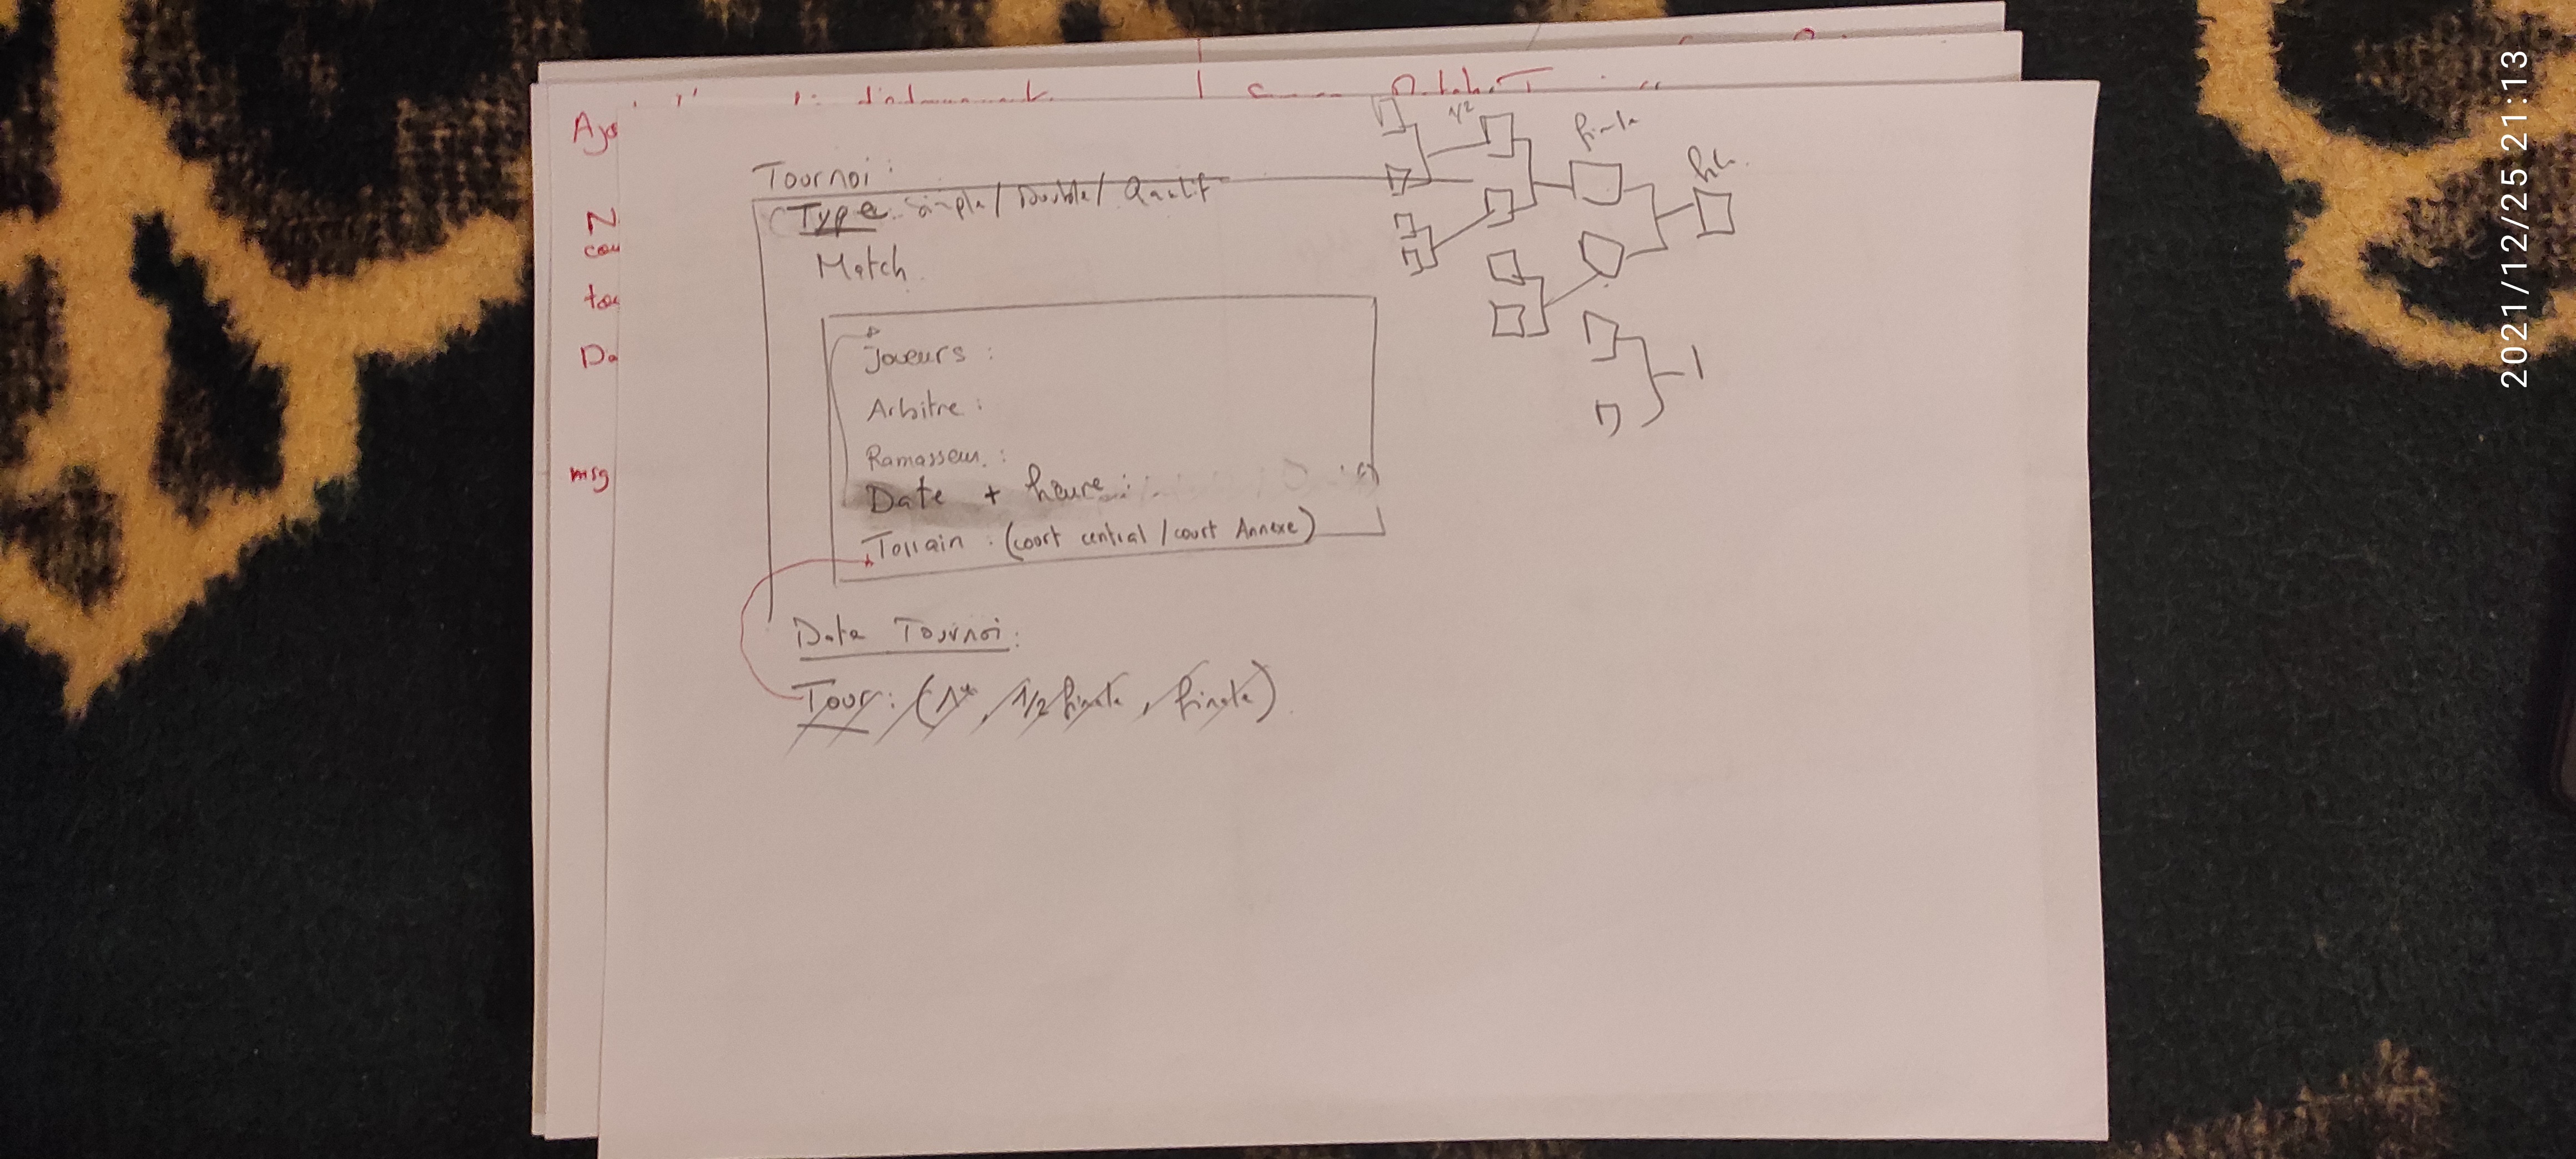 Tournoi :
Type : Simple / Double / Qualif
Match
Joueurs :
Arbitre :
Ramasseur :
Date + heure :
Terrain : (court central / court Annexe)
Date Tournoi :
Tour : (1er, 1/2 finale, finale)
1/2
finale
Ajo
N
cou
tou
Da
msg
2021/12/25 21:13